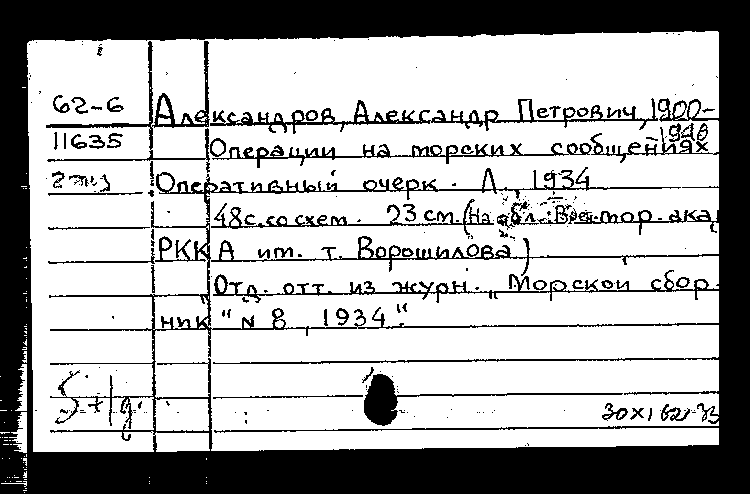 62-6 Александров, Александр Петрович, 1900-
-1946
11635 Операции на морских сообщениях.
2 экз Оперативный очерк. Л., 1934
48с. со схем. 23 см. (На обл.: Воен.-мор. ака
РККА им. т. Ворошилова)
Отд. отт. из журн. „Морской сбор-
ник" N 8, 1934".
30 X 1 62